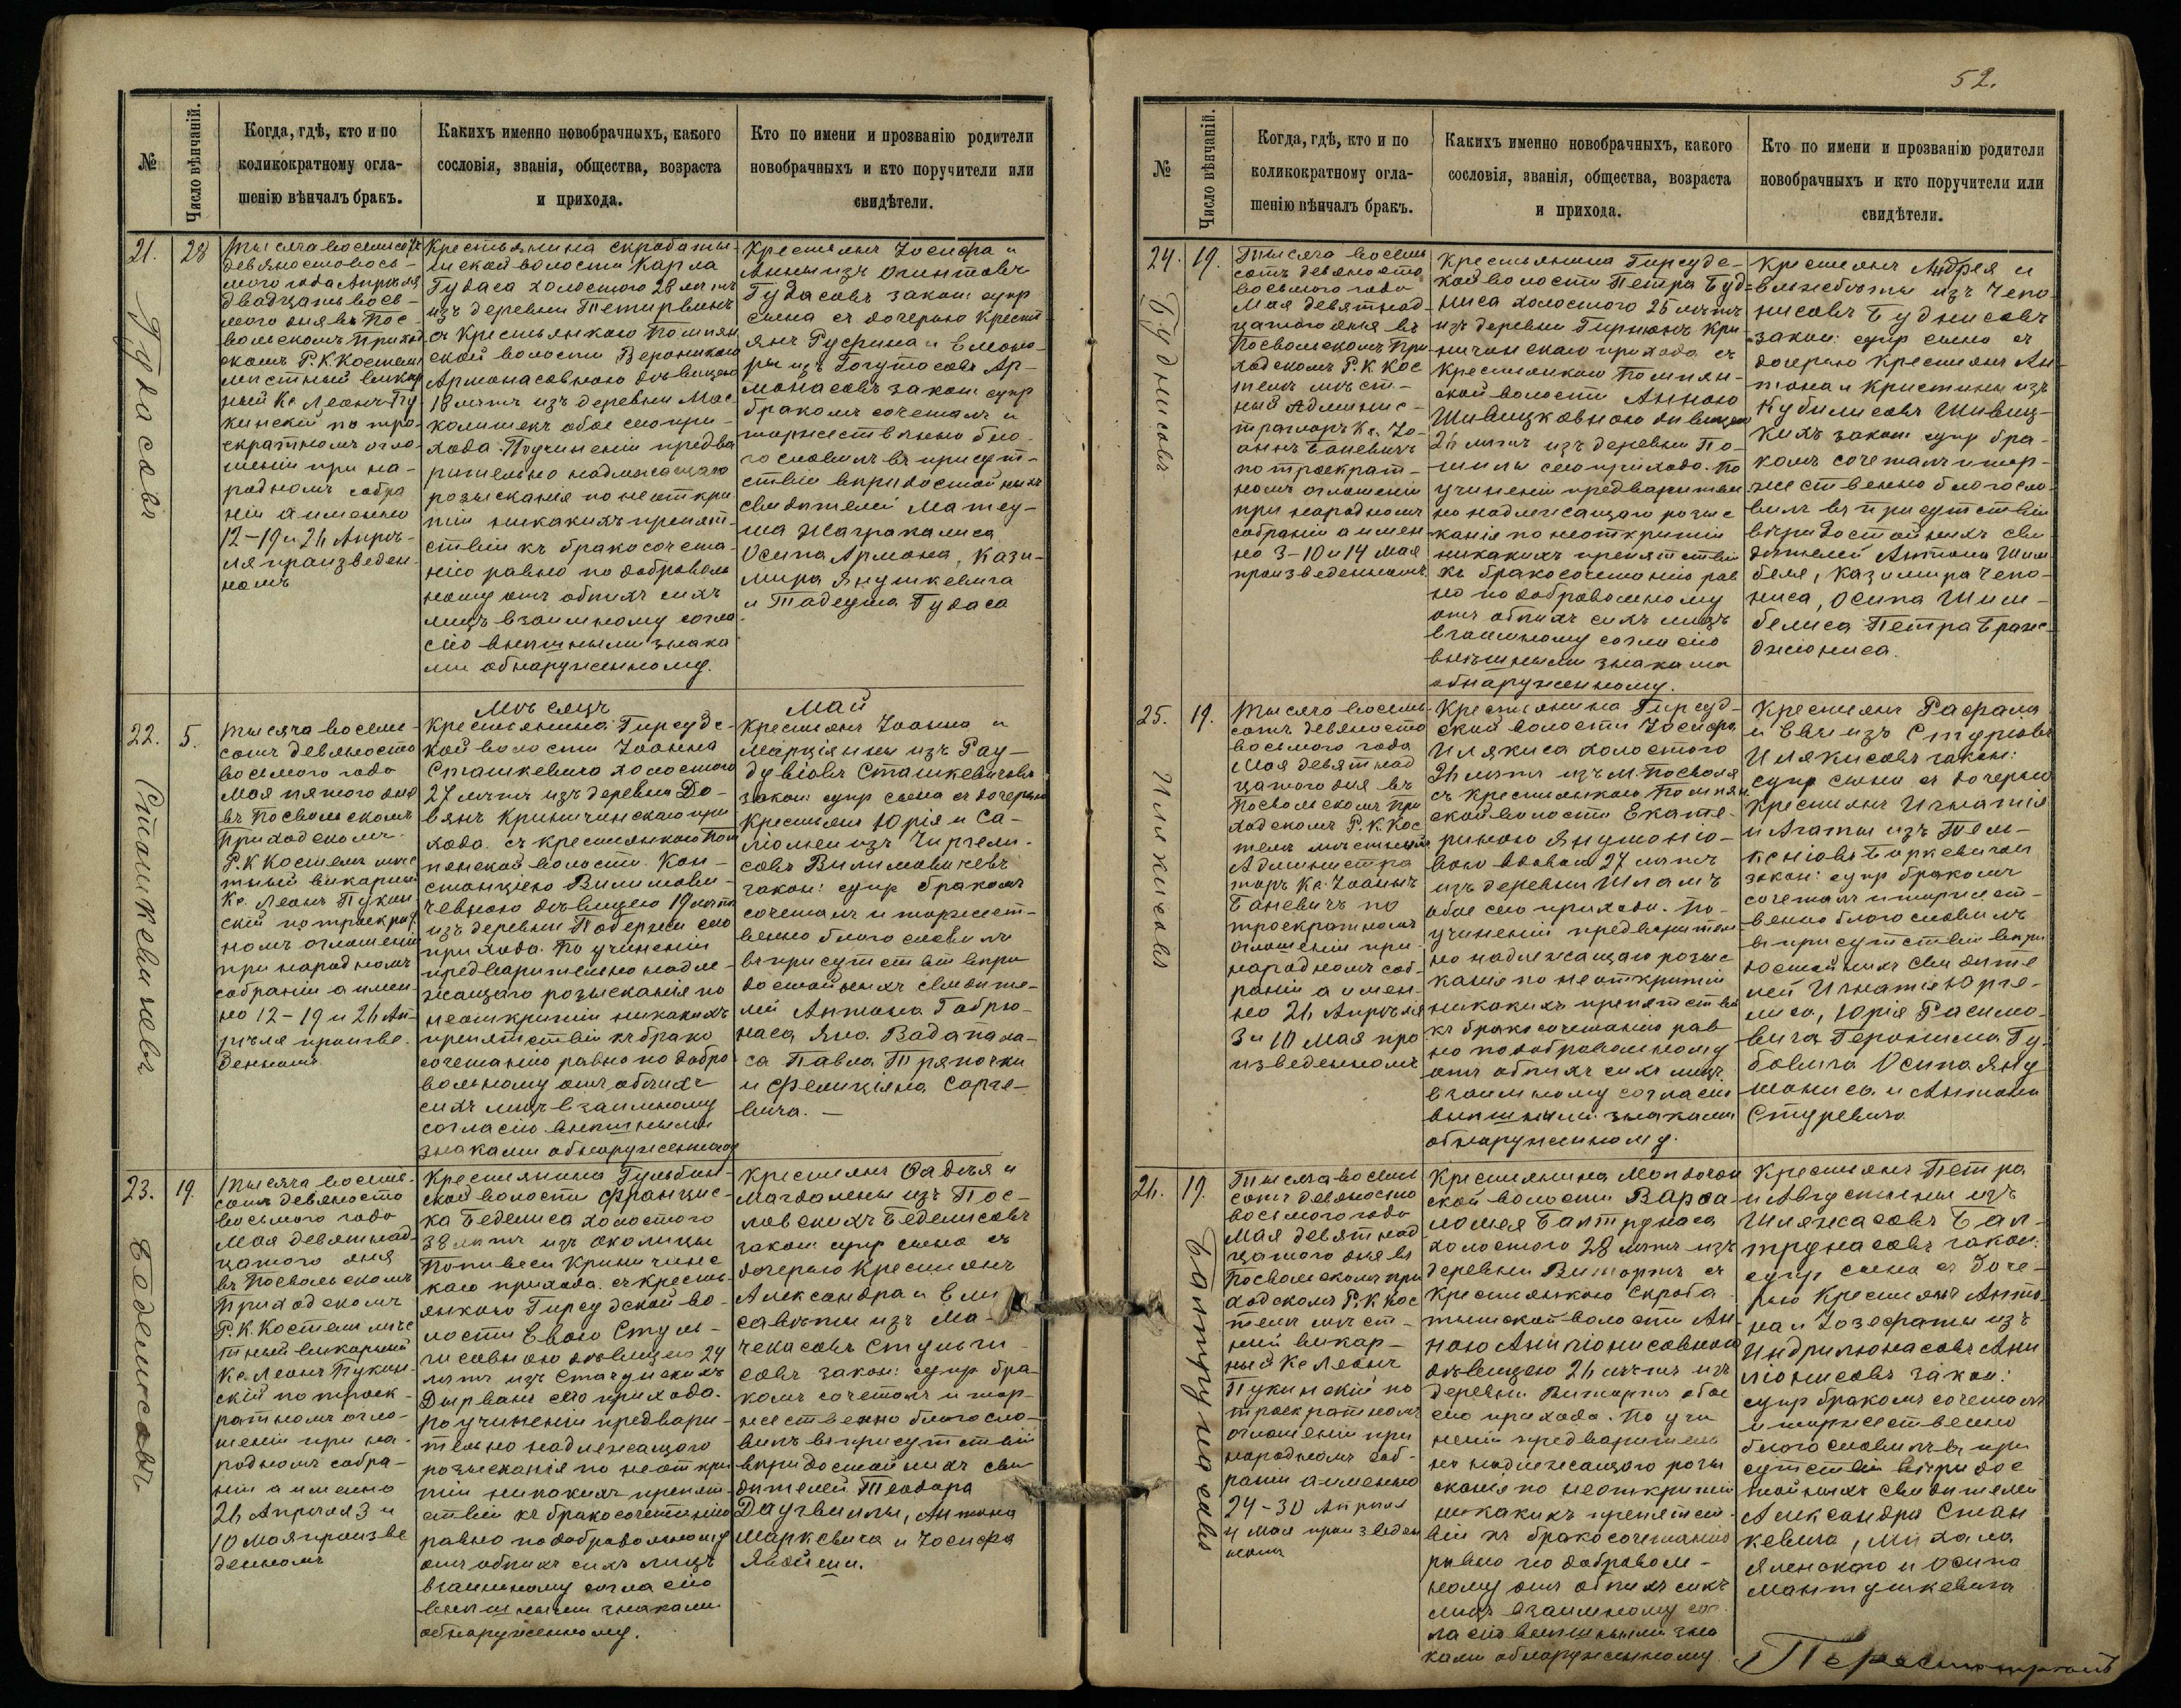 №
Число вѣнчаній.
Когда, гдѣ, кто и по
коликократному огла-
шенію вѣнчалъ бракъ.
Какихъ именно новобрачныхъ, какого
сословія, званія, общества, возраста
и прихода.
Кто по имени и прозванію родители
новобрачныхъ и кто поручители или
свидѣтели.
21.
Гудасовъ
28
Тысяча восемьсотъ
девяностовось-
мого года Апрѣля
двадцать вось-
мого дня въ Пос-
вольскомъ Приход
скомъ Р. К. Костелѣ
мѣстный викар
ный Кс Леонъ Пу
кинскій по тро
екратномъ огла
шеніи при на-
родномъ собра
ніи а именно
12-19 и 26 Апрѣ-
ля произведен-
номъ
Крестьянина Скроботы-
шской волости Карла
Гудаса холостого 28 лѣтъ
изъ деревни
съ Крестьянкою Помпян
ской волости Вероникою
Армонасовною дѣвицею
18 лѣтъ изъ деревни Мос
колишекъ обое сего при-
хода. По учиненіи предва
рительно надлежащаго
розысканія по неоткры
тіи никакихъ препят-
ствій къ бракосочета-
нію равно по доброволь
ному отъ обѣихъ сихъ
лицъ взаимному согла
сію внѣшными знака
ми обнаруженному.
Крестьянъ Іосифа и
Анны изъ Огинтовъ
Гудасовъ закон: супр
сына съ дочерью Крест
янъ Руфина и Елеоно-
ры изъ Богутосовъ Ар-
монасовъ закон супр
бракомъ сочеталъ и
торжественно бла-
гословилъ въ присут-
ствіи вѣридостойныхъ
свидѣтелей Матеу-
ша Жагракалиса
Осипа Армона, Кази-
мира Янушкевича
и Тадеуша Гудаса
Мѣсяцъ
Май
22.
Сташкевичевъ
5.
Тысяча восемь-
сотъ девяносто
восьмого года
Мая пятого дня
въ Посвольскомъ
Приходскомъ
Р. К Костелѣ мѣс
тный викарный
Кс. Леонъ Пукин
скій по троекрат
номъ оглашеніи
при народномъ
собраніи а имен
но 12-19 и 26 Ап-
рѣля произве-
денномъ
Крестьянина Гирсудс-
кой волости Іоанна
Сташкевича холостого
27 лѣтъ изъ деревни До-
вянъ Криничинскаго при
хода съ крестьянкою Пом
пянской волости Кон-
станціею Вилимови-
чевною дѣвицею 19 лѣтъ
изъ деревни сего
прихода. По учиненіи
предварительно надле-
жащаго розысканія по
неоткрытіи никакихъ
препятствій къ брако
сочетанію равно по добро
вольному отъ обѣихъ
сихъ лицъ взаимному
согласію внѣшными
знаками обнаруженному
Крестьянъ Іоанна и
Марціянны изъ Рау-
дувіовъ Сташкевичовъ
закон: супр сына съ дочерью
Крестьянъ Юрія и Са-
ломеи изъ
Вилимовичевъ
закон: супр бракомъ
сочеталъ и торжест-
венно благословилъ
въ присутствіи вѣри
достойныхъ свидѣте-
лей Антона Габрю-
наса Яна Вадапала-
са Павла Тряпочки
и Фелиціяна Сарге-
вича.-
23.
Беделисовъ
19.
Тысяча восемь-
сотъ девяносто
восьмого года
Мая девятнад-
цатого дня
въ Посвольскомъ
Приходскомъ
Р. К. Костелѣ мѣс
тный викарный
Кс. Леонъ Пукин-
скій по троек-
ратномъ огло-
шеніи при на-
родномъ собра-
ніи а именно
26 Апрѣля 3 и
10 Мая произве
денномъ
Крестьянина Гульбин-
ской волости Францис-
ка Беделиса холостого
38 лѣтъ изъ околицы
Попивеси Криничинс
каго прихода съ кресть-
янкою Гирсудской во-
лости Евою Стуль-
гисовною дѣвицею 24
лѣтъ изъ
Дырванъ сего прихода.
По учиненіи предвари-
тельно надлежащаго
розысканія по неоткры
тіи никакихъ препят-
ствій къ бракосочетанію
равно по добровольному
отъ обѣихъ сихъ лицъ
взаимному согласію
внѣшными знаками
обнаруженному.
Крестьянъ Фадѣя и
Магдалены изъ Пос-
ловскихъ Беделисовъ
закон супр сына съ
дочерью Крестьянъ
Александра и Ели
саветы изъ Ма-
чекасовъ Стульги-
совъ закон: супр бра-
комъ сочеталъ и тор-
жественно благосло-
вилъ въ присутствіи
вѣридостойныхъ сви
дѣтелей Теодора
Даугвиллы, Антона
Марксвича и Іосифа
Явойши.
52.
№
Число вѣнчаній.
Когда, гдѣ, кто и по
коликократному огла-
шенію вѣнчалъ бракъ.
Какихъ именно новобрачныхъ, какого
сословія, званія, общества, возраста
и прихода.
Кто по имени и прозванію родители
новобрачныхъ и кто поручители или
свидѣтели.
24.
Буднисовъ
19.
Тысяча восемь
сотъ девяносто
восьмого года
Мая девятнад-
цатого дня въ
Посвольскомъ При
ходскомъ Р. К Кос
телѣ мѣст-
ный Админис-
траторъ Кс. Іо-
аннъ Баневичъ
по троекрат-
номъ оглошеніи
при народномъ
собраніи а имен
но 3-10 и 14 Мая
произведенномъ
Крестьянина Гирсудс-
кой волости Петра Буд-
ниса холостого 25 лѣтъ
изъ деревни Гирнюнъ Кри
ничинскаго прихода съ
Крестьянкою Помпян-
ской волости Анною
Шивицковною дѣвицею
26 лѣтъ изъ деревни По-
шилы сего прихода. По
учиненіи предварител
но надлежащаго розыс
канія по неоткрытіи
никакихъ препятствій
къ бракосочетанію рав
но по добровольному
отъ обѣихъ сихъ лицъ
взаимному согласію
внѣшными знаками
обнаруженному.
Крестьянъ Андрея и
Елисабеты изъ Чепо-
нисовъ Буднисовъ
закон: супр сына съ
дочерью Крестьянъ Ан-
тона и Кристины изъ
Кубилисовъ Шивиц-
кихъ закон супр бра-
комъ сочеталъ и тор-
жественно благосло-
вилъ въ присутствіи
вѣридостойныхъ сви
дѣтелей Антона Шим
беля, Казимира Чепо-
ниса, Осипа Шим-
белиса Петра Браж-
джюниса.
25.
Илякисовъ
19.
Тысяча восемь
сотъ девяносто
восьмого года
Мая девятнад
цатого дня въ
Посвольскомъ При
ходскомъ Р. К. Кос
телѣ мѣстный
Администра
торъ Кс. Іоаннъ
Баневичъ по
троекратномъ
оглошеніи при
народномъ соб-
раніи а имен-
но 26 Апрѣля
3 и 10 Мая про
изведенномъ
Крестьянина Гирсуд-
ской волости Іосифа
Илякиса холостого
26 лѣтъ изъ м. Посволя
съ крестьянкою Помпян
ской волости Екате-
риною Янушонісо-
вою вдовою 27 лѣтъ
изъ деревни Шламъ
обое сего прихода. По-
учиненіи предварител
но надлежащаго розыс
канія по неоткрытіи
никакихъ препятствій
къ бракосочетанію рав
но по добровольному
отъ обѣихъ сихъ лицъ
взаимному согласію
внѣшными знаками
обнаруженному.
Крестьянъ Рафала
и Евы изъ Стурювъ
Илякисовъ закон:
супр сына съ дочерью
Крестьянъ Игнатія
и Агаты изъ
Буркевичей
закон: супр бракомъ
сочеталъ и торжест-
венно благословилъ
въ присутствіи вѣри
достойныхъ свидѣте
лей Игнатія Юрге-
лиса, Юрія Расимо-
вича Геронима Гу-
бовича Осипа Яну
шониса и Антона
Стуревича
26.
Балтрунасовъ
19.
Тысяча восемь
сотъ девяносто
восьмого года
Мая девятнад
цатого дня въ
Посвольскомъ при
ходскомъ Р. К Кос
телѣ мѣст-
ный викар-
ный Кс Леонъ
Пукинскій по
троекратномъ
оглошеніи при
народномъ соб-
раніи а именно
24-30 Апрѣля
и Мая произведен
номъ
Крестьянина
ской волости Варфа-
ломея Балтрунаса
холостого 28 лѣтъ изъ
деревни Витортъ съ
Крестьянкою Скробо
тышской волости Ан-
ною
дѣвицею 26 лѣтъ изъ
деревни Витортъ обое
сего прихода. По учи
неніи предварительно
надлежащаго розы
сканія по неоткрытіи
никакихъ препятст-
вій къ бракосочетанію
равно по доброволь-
ному отъ обѣихъ сихъ
лицъ взаимному сог-
ласію внѣшными зна
ками обнаруженному.
Крестьянъ Петра
и Августины изъ
Шляжасовъ Бал-
трунасовъ закон:
супр сына съ доче-
рью Крестьянъ Анто-
на и Іозефаты изъ
Индрилюнасовъ
закон:
супр бракомъ сочеталъ
и торжественно
благословилъ въ при
сутствіи вѣридос
тойныхъ свидѣтелей
Александра Стан
кевича, Михала
Яленского и Осипа
Мантушкевича